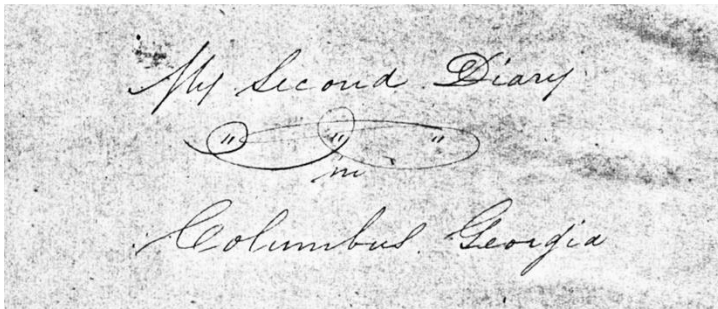 My Second Diary
" " "
in
Columbus. Georgia